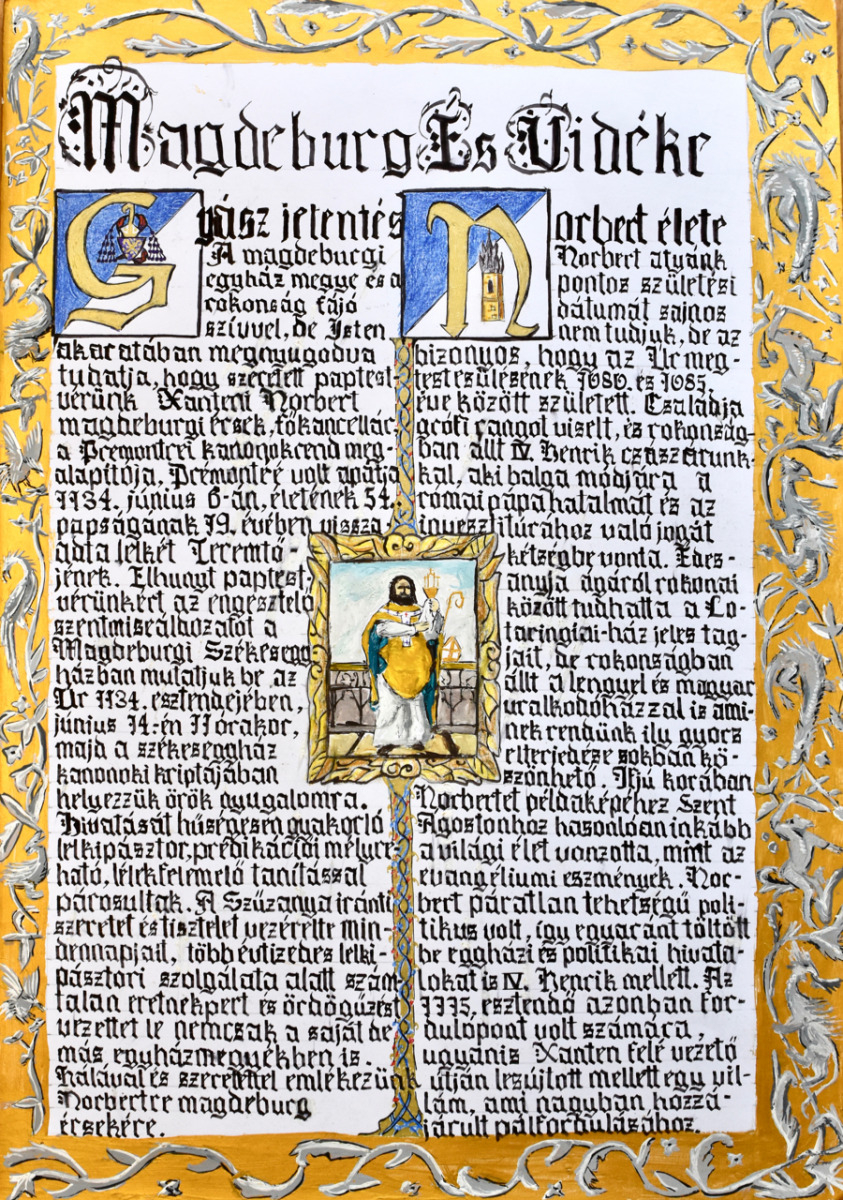 Magdeburg És Vidéke
Gyász jelentés
A magdeburgi
egyház megye és a
rokonság fájó
szívvel, de Isten
akaratában megnyugodva
tudatja, hogy szeretett paptest-
vérünk Xanteni Norbert
magdeburgi érsek, főkancellár
a Premontrei kanonokrend meg-
alapítója, Prémontré volt apátja
1134. június 6-án, életének 54.
papságának 19. évében vissza
adta lelkét Teremtő-
jének. Elhunyt paptest-
vérünkért az engesztelő
szentmiseáldozatot a
Magdeburgi Székesegy
házban mutatjuk be, az
Úr 1134. esztendejében,
június 14-én 11 órakor,
majd a székesegyház
kanonoki kriptájában
helyezzük örök nyugalomra.
Hivatását hűségesen gyakorló
lelkipásztor, prédikációi mélyre
ható, lélekfelemelő tanítással
párosultak. A Szűzanya iránti
szeretet és tisztelet vezérelte min-
dennapjait, több évtizedes lelki-
pásztori szolgálata alatt szám-
talan eretnekpert és ördögűzést
vezettet le nemcsak a saját de
más egyházmegyékben is.
Hálával és szeretettel emlékezünk
Norbertre magdeburg
érsekére.
Norbert élete
Norbert atyánk
pontos születési
dátumát sajnos
nem tudjuk, de az
bizonyos, hogy az Úr meg-
testesülésének 1080. és 1085.
éve között született. Családja
grófi rangot viselt, és rokonság-
ban állt IV. Henrik császárunk-
kal, aki balga módjára a
római pápa hatalmát és az
invesztitúrához való jogát
kétségbe vonta. Édes-
anyja ágáról rokonai
között tudhatta a Lo-
taringiai-ház jeles tag-
jait, de rokonságban
állt a lengyel és magyar
uralkodóházzal is ami-
nek rendünk ily gyors
elterjedése sokban kö-
szönhető. Ifjú korában
Norbertet példaképéhez Szent
Ágostonhoz hasonlóan inkább
a világi élet vonzotta, mint az
evangéliumi eszmények. Nor-
bert páratlan tehetségű poli-
tikus volt, így egyaránt töltött
be egyházi és politikai hivata-
lokat is IV. Henrik mellett. Az
1115, esztendő azonban for-
dulópont volt számára,
ugyanis Xanten felé vezető
útján lesújtott mellett egy vil-
lám, ami nagyban hozzá-
járult pálfordulásához.